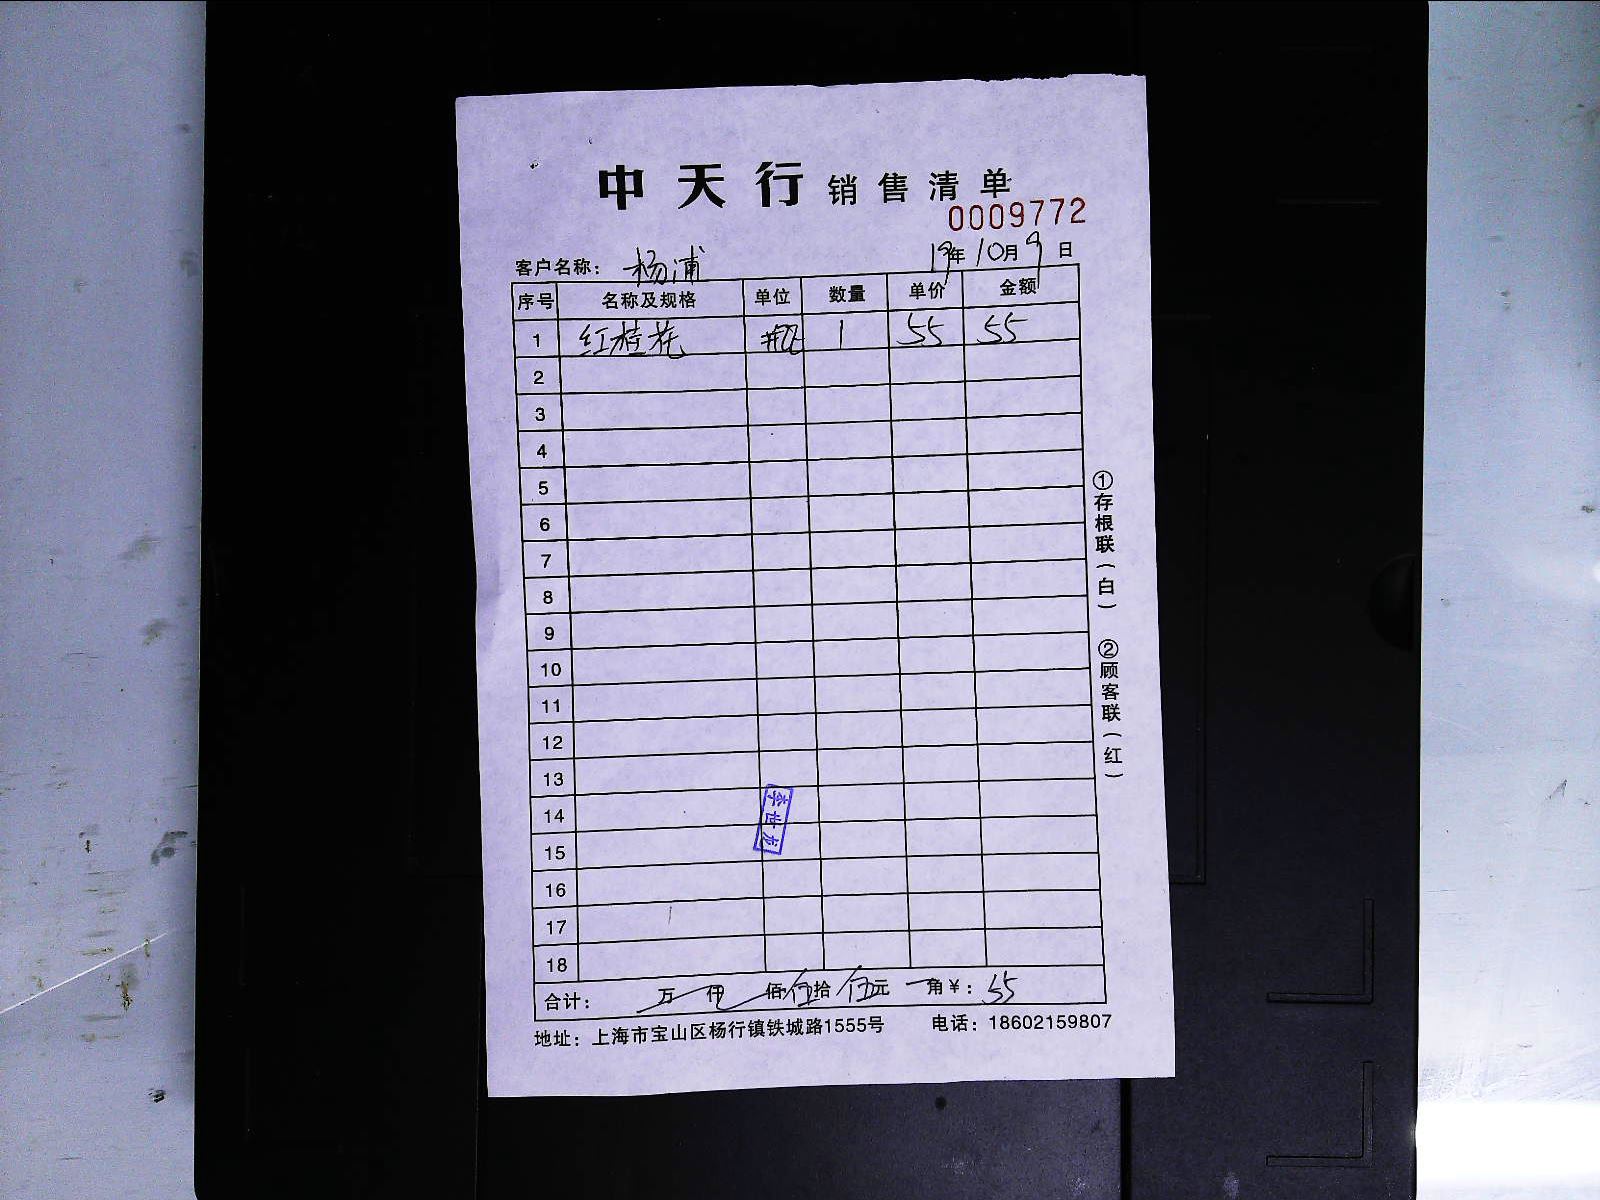 中天行 销售清单
0009772
客户名称： 杨浦 19年10月9日
序号 名称及规格 单位 数量 单价 金额
1 红桂花 1 55 55
2
3
4
5
6
7
8
9
10
11
12
13
14
15
16
17
18
李世龙
合计： 万 仟 佰 伍拾 伍元 角￥：55
地址：上海市宝山区杨行镇铁城路1555号 电话：18602159807
①存根联（白） ②顾客联（红）